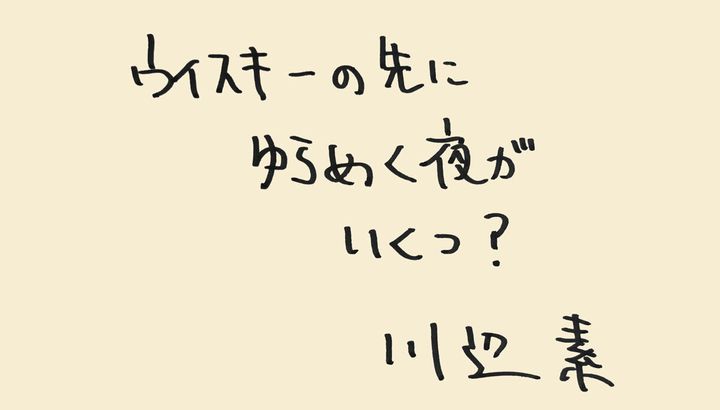 ウイスキーの先に
ゆらめく夜が
いくつ?
川辺素